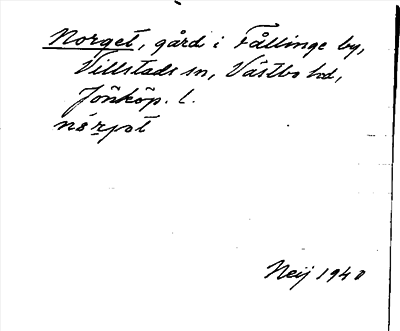 Norget, gård i Fållinge by,
Villstads sn, Västbo hd,
Jönköp. l.
Neij 1940